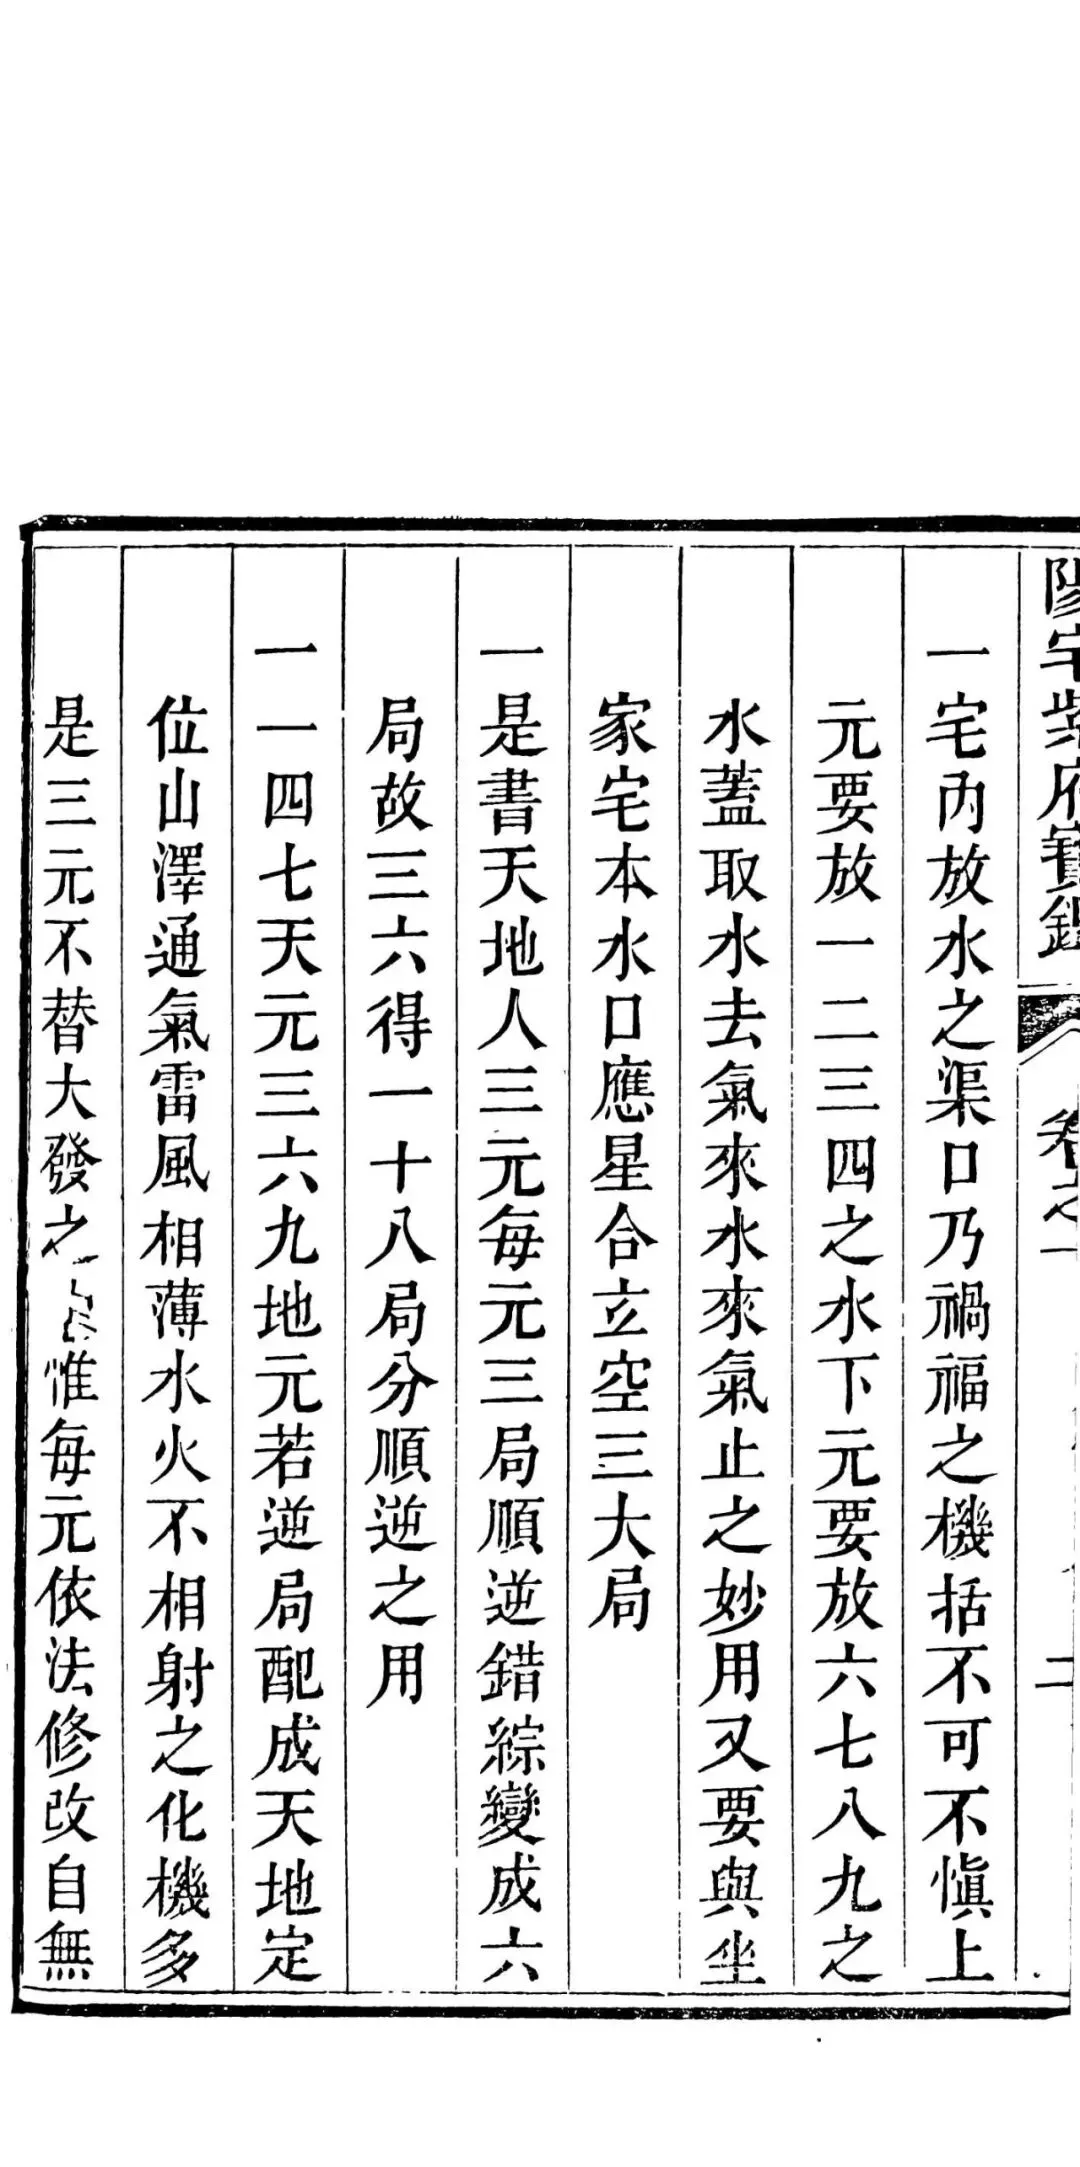 陽宅紫府寶鑑 卷之一 二
一宅內放水之渠口乃禍福之機括不可不慎上
元要放一二三四之水下元要放六七八九之
水蓋取水去氣來水來氣止之妙用又要與坐
家宅本水口應星合立空三大局
一是書天地人三元每元三局順逆錯綜變成六
局故三六得一十八局分順逆之用
一一四七天元三六九地元若逆局配成天地定
位山澤通氣雷風相薄水火不相射之化機多
是三元不替大發之惟每元依法修改自無